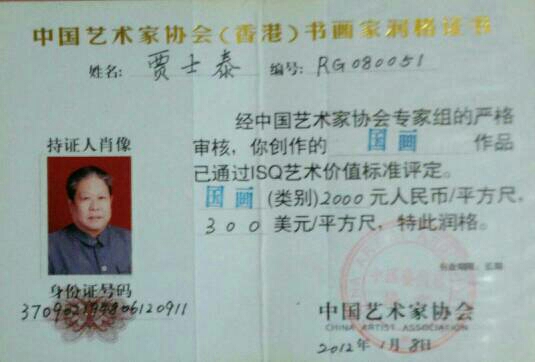 中国艺术家协会(香港)书画家润格证书
姓名: 贾士泰 编号: RG080051
经中国艺术家协会专家组的严格
持证人肖像
审核,你创作的 国画 作品
已通过ISQ艺术价值标准评定。
国画 (类别)2000元人民币/平方尺,
300美元/平方尺,特此润格。
身份证号码
中国艺术家协会
CHINA ARTIST ASSOCIATION
2012年1月8日